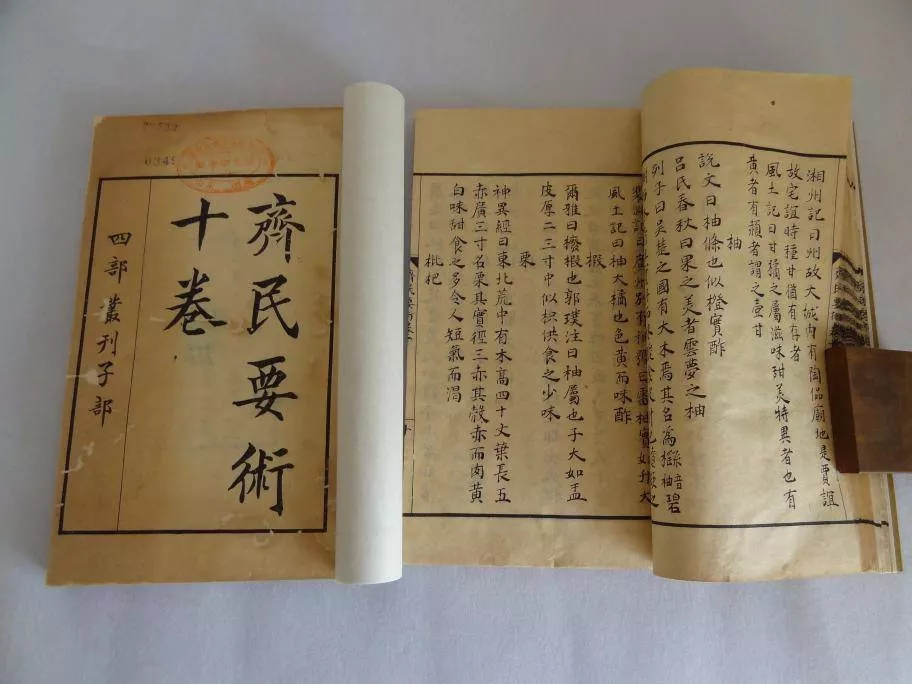 齊民要術
十卷
四部叢刊子部
湘州記曰州故大城內有陶侃廟地是賈誼
故宅誼時種甘猶有存者
風土記曰甘橘之屬滋味甜美特異者也有
黃者有赬者謂之壺甘
柚
說文曰柚條也似橙實酢
呂氏春秋曰果之美者雲夢之柚
列子曰吳楚之國有大木焉其名為櫾音柚碧
記曰廣州別有柚號曰雷柚實如升大
風土記曰柚大橘也色黃而味酢
椵
爾雅曰櫠椵也郭璞注曰柚屬也子大如盂
皮厚二三寸中似枳供食之少味
栗
神異經曰東北荒中有木高四十丈葉長五
赤廣三寸名栗其實徑三赤其殼赤而肉黃
白味甜食之多令人短氣而渴
枇杷